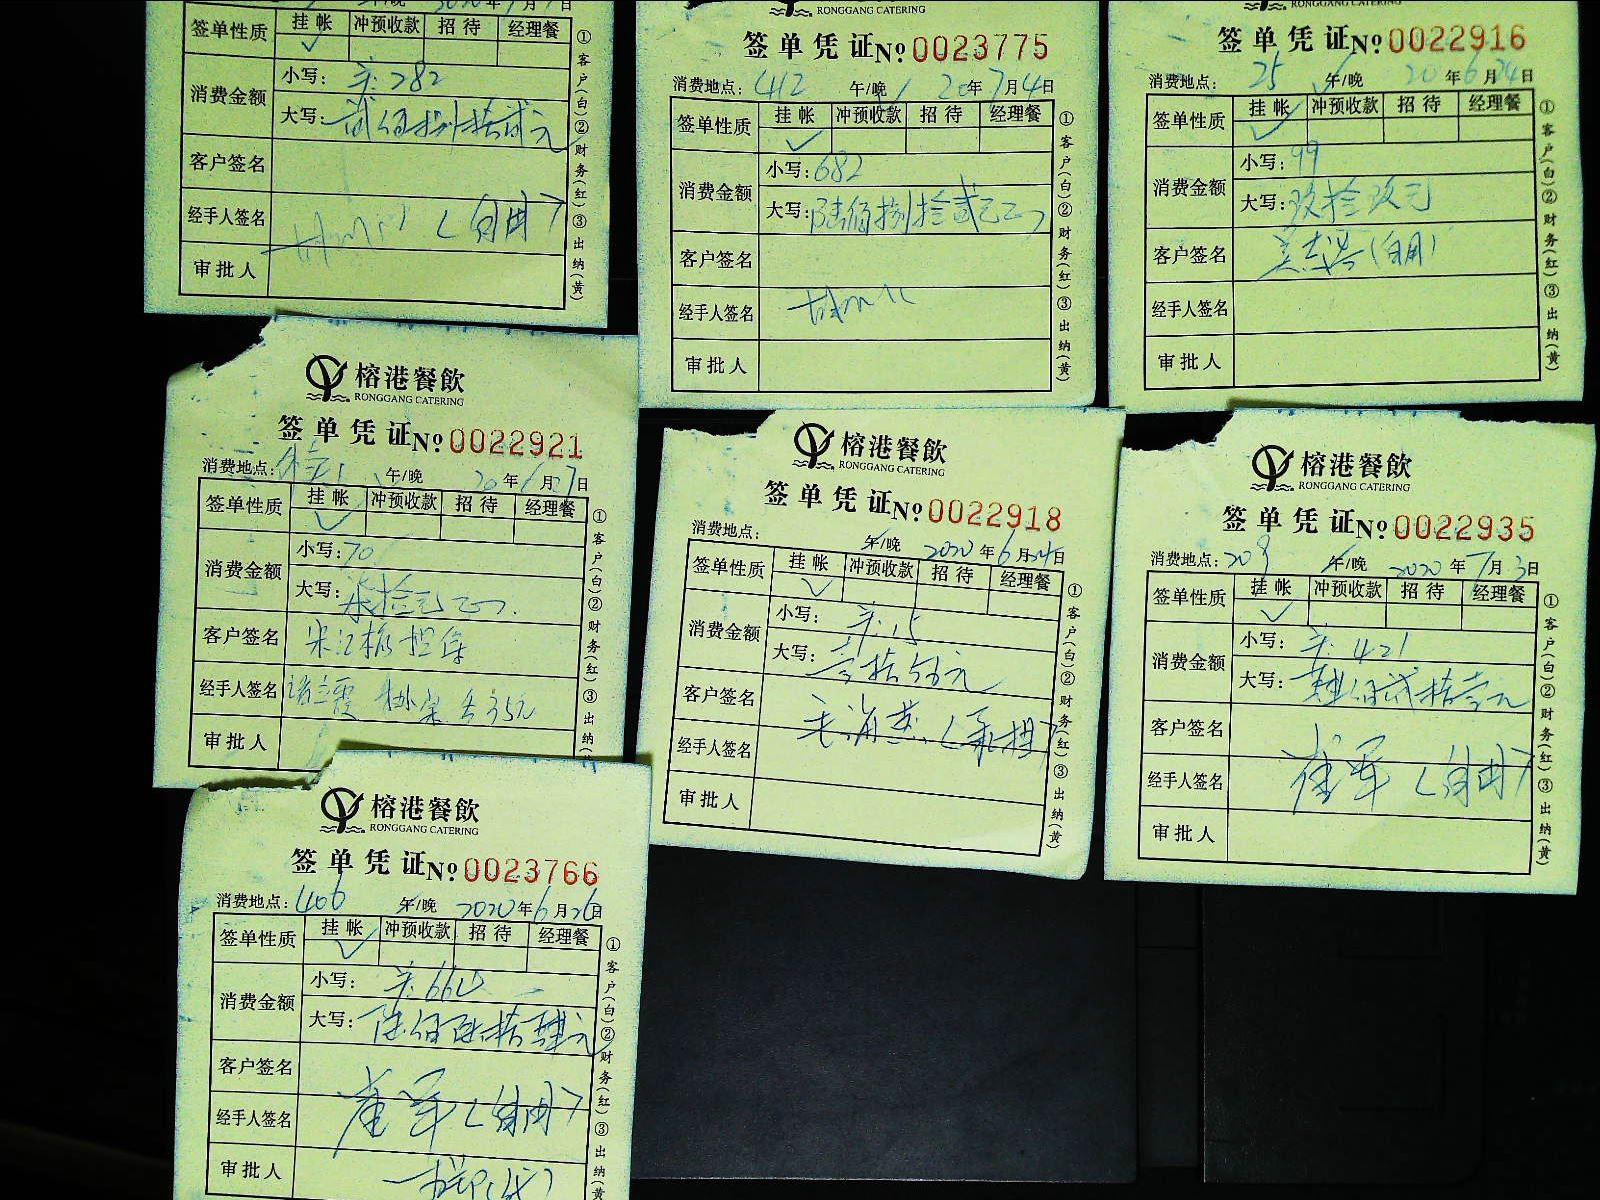 签单性质 挂帐 冲预收款 招待 经理餐
消费金额 小写: 282
大写: 贰佰捌拾贰元
客户签名
经手人签名 (自用)
审批人
①客户(白)②财务(红)③出纳(黄)
RONGGANG CATERING
签单凭证 No 0023775
消费地点: 412 午/晚 20年7月4日
签单性质 挂帐 冲预收款 招待 经理餐
消费金额 小写: 682
大写: 陆佰捌拾贰元正
客户签名
经手人签名
审批人
①客户(白)②财务(红)③出纳(黄)
RONGGANG CATERING
签单凭证 No 0022916
消费地点: 25 午/晚 20年6月24日
签单性质 挂帐 冲预收款 招待 经理餐
消费金额 小写: 99
大写: 玖拾玖元
客户签名 (自用)
经手人签名
审批人
①客户(白)②财务(红)③出纳(黄)
榕港餐飲
RONGGANG CATERING
签单凭证 No 0022921
消费地点: 午/晚 20年6月27日
签单性质 挂帐 冲预收款 招待 经理餐
消费金额 小写: 70
大写: 柒拾元正
客户签名 担保
经手人签名 各35元
审批人
①客户(白)②财务(红)③出纳(黄)
榕港餐飲
RONGGANG CATERING
签单凭证 No 0022918
消费地点: 午/晚 2020年6月24日
签单性质 挂帐 冲预收款 招待 经理餐
消费金额 小写: 15
大写: 壹拾伍元
客户签名
经手人签名
审批人
①客户(白)②财务(红)③出纳(黄)
榕港餐飲
RONGGANG CATERING
签单凭证 No 0022935
消费地点: 209 午/晚 2020年7月3日
签单性质 挂帐 冲预收款 招待 经理餐
消费金额 小写: 421
大写: 肆佰贰拾壹元
客户签名
经手人签名 崔军(自用)
审批人
①客户(白)②财务(红)③出纳(黄)
榕港餐飲
RONGGANG CATERING
签单凭证 No 0023766
消费地点: 406 午/晚 2020年6月26日
签单性质 挂帐 冲预收款 招待 经理餐
消费金额 小写: 664
大写: 陆佰陆拾肆元
客户签名
经手人签名 崔军(自用)
审批人
①客户(白)②财务(红)③出纳(黄)